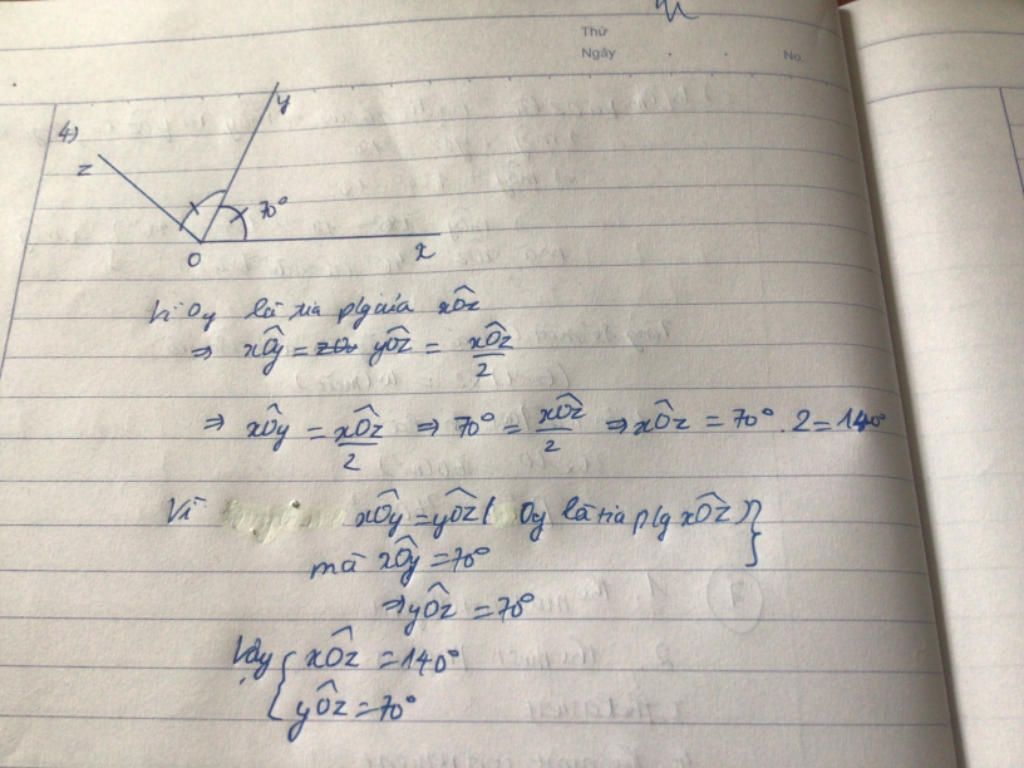 Thứ
Ngày . . No.
4)
y
z
70°
O
x
Vì Oy là tia p/g của xÔz
⇒ xÔy = yÔz = xÔz/2
⇒ xÔy = xÔz/2 ⇒ 70° = xÔz/2 ⇒ xÔz = 70° . 2 = 140°
Vì xÔy = yÔz ( Oy là tia p/g xÔz ) }
mà xÔy = 70°
⇒ yÔz = 70°
Vậy { xÔz = 140°
yÔz = 70°